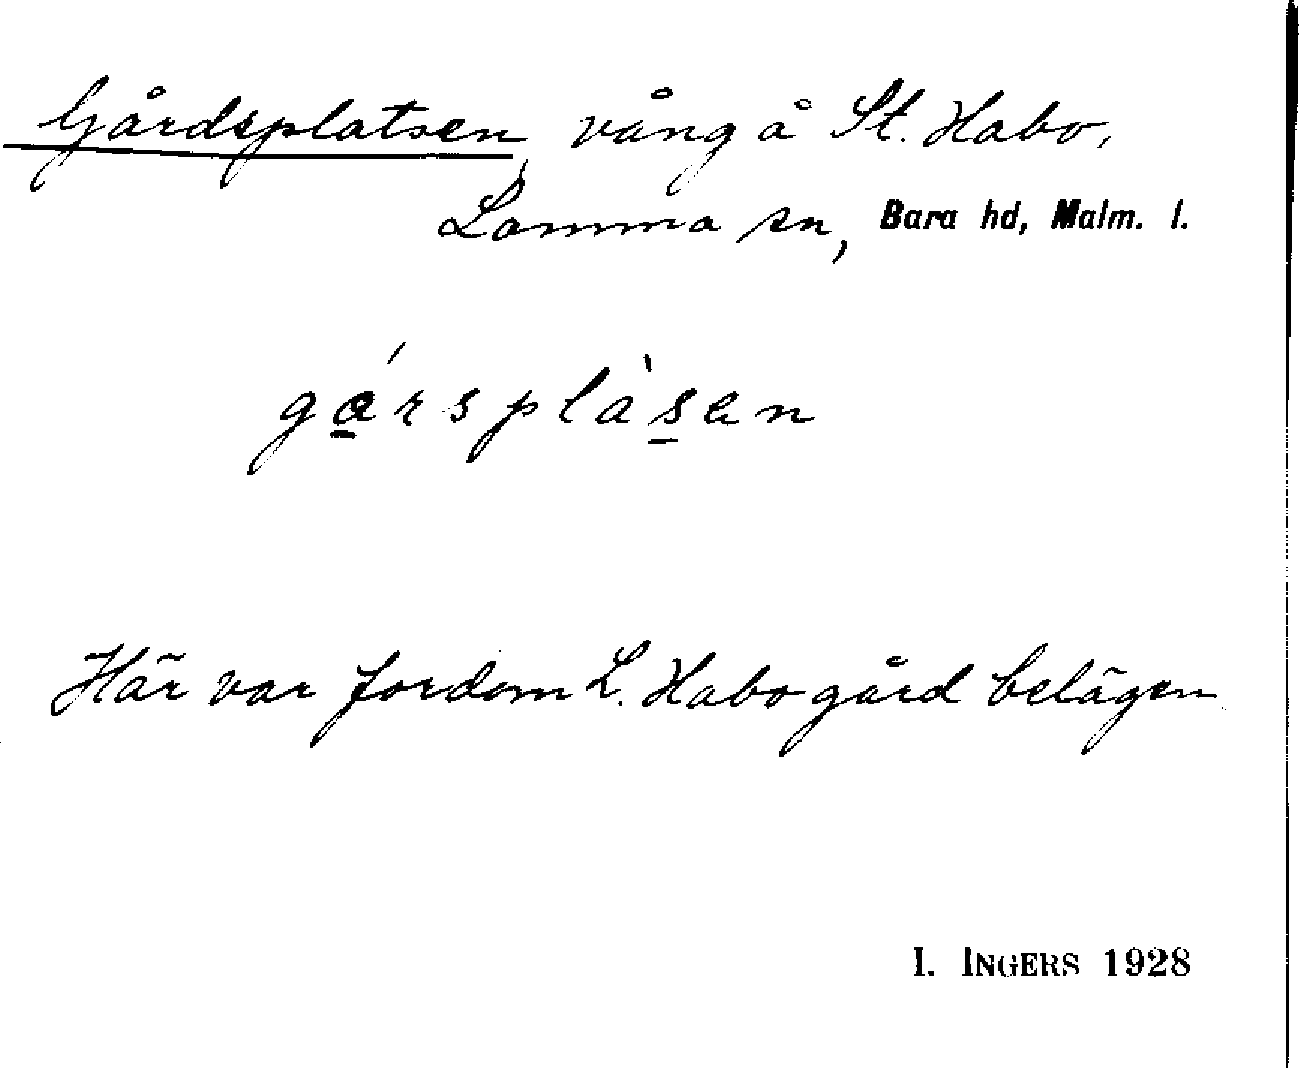 Gårdsplatsen, vång å St. Habo,
Lomma sn, Bara hd, Malm. l.
gårsplàsen
Här var fordom L. Habo gård belägen
I. INGERS 1928